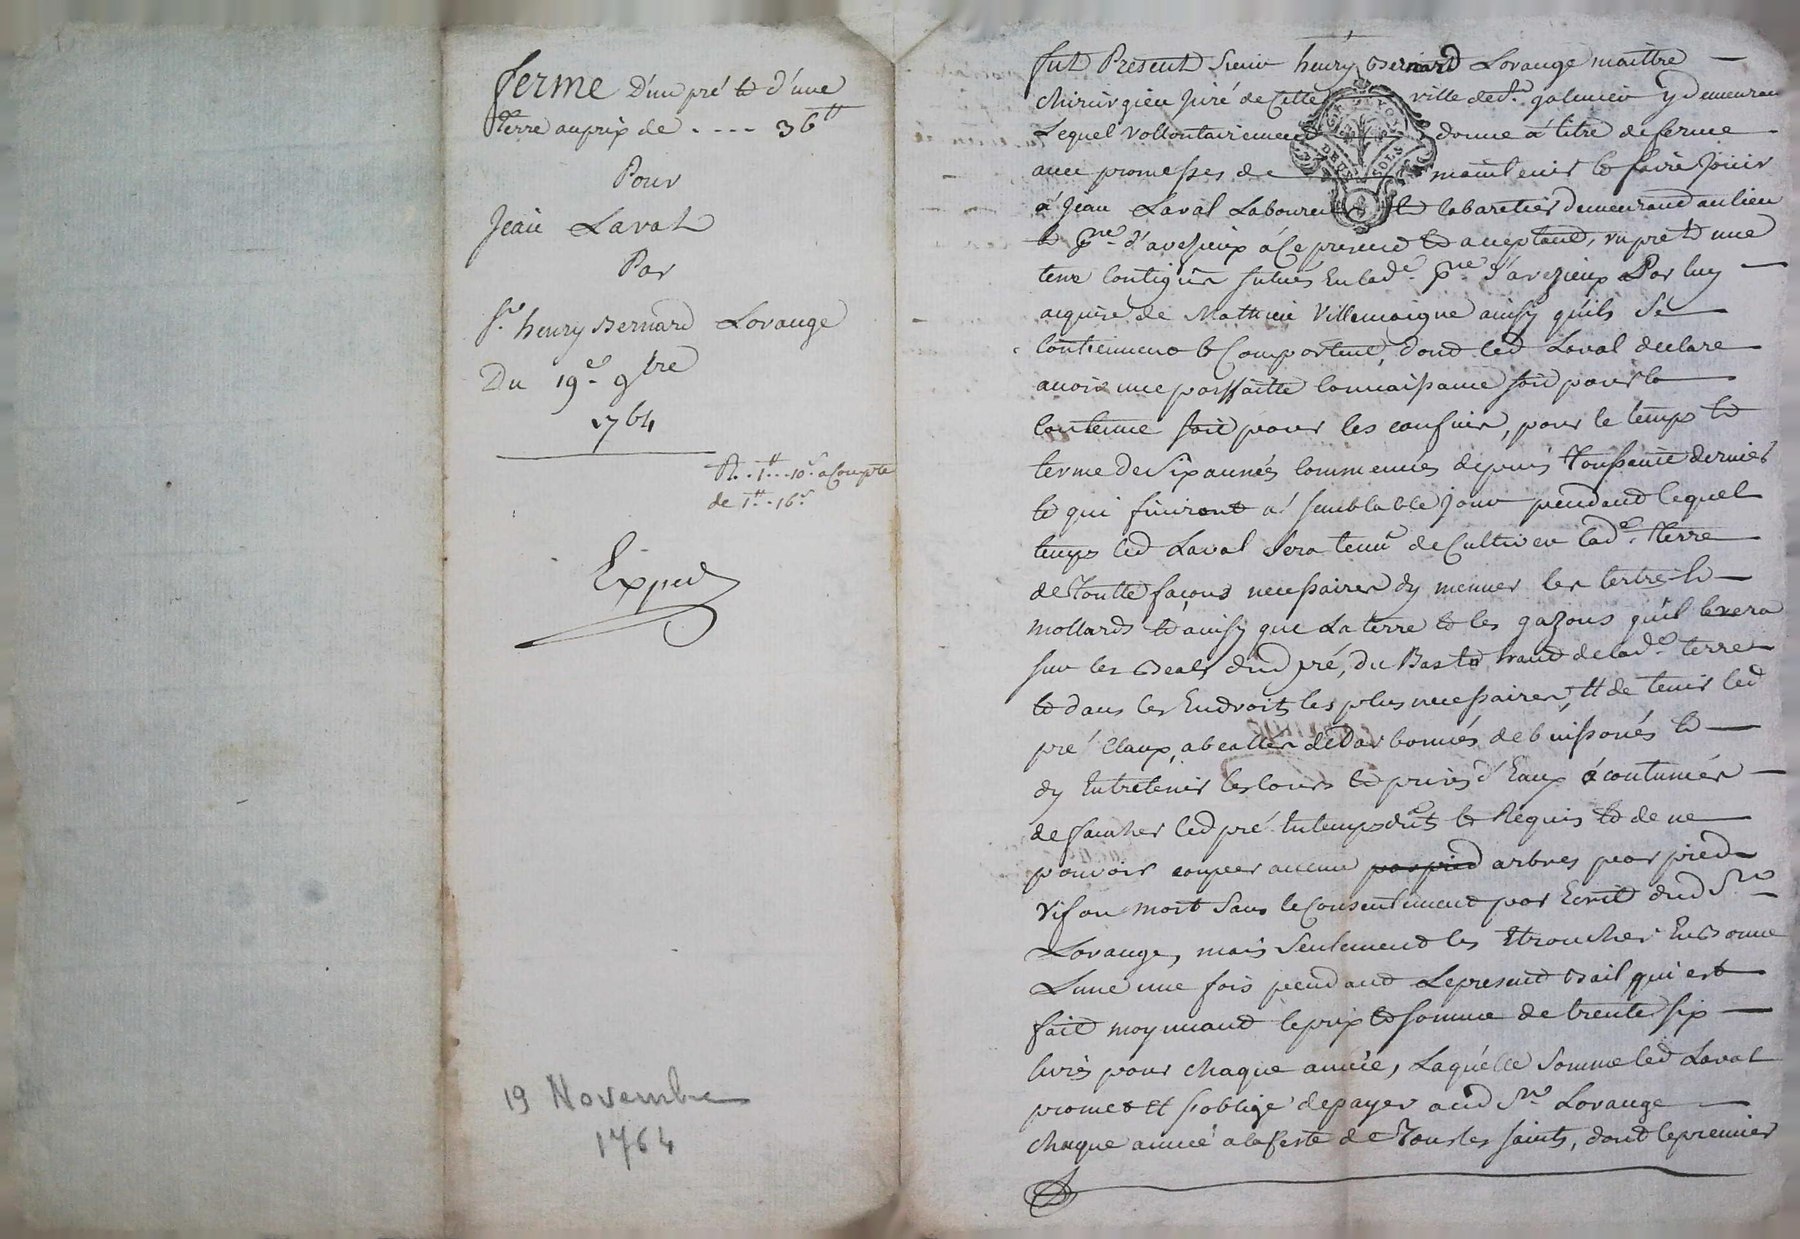 ferme D'un pré et d'une
terre au prix de . - - - 36 ₶
Pour
Jean Laval
Par
Sr. henry Bernard Lorange
Du 19e. 9bre
1764
R. 1₶.. 10s. a Compte
de 1₶. 16s.
Exped
19 Novembre
1764
fut Present Sieur henry Bernard Lorange maittre
chirurgien Juré de Cette ville de St. galmier y demeurant
Lequel vollontairement donne a titre de ferme
avec promesses de maintenir et faire Jouir
a Jean Laval Laboureur et Cabaretier demeurant au lieu
et d'avezieux a Ce present et acceptant, un pré et une
terre Contigus situés En lad.e d'avezieux Par luy
acquise de Mathieu Villemaigne ainsy qu'ils Se
Contiennent et Comportent, dont led Laval declare
avoir une parffaitte Connaissance soit pour la
Contenue soit pour les confins, pour le temps et
terme de Six années Commencées depuis Toussaint dernier
et qui finiront a semblable Jour pendant lequel
temps led Laval Sera tenu de Cultiver lad.e terre
de Toutte façons necessaires dy menner les tertres et
mollards et ainsy que La terre et les gazons qu'il levera
sur les Beals dud pré, du Bas et haut de lad.e terre
et dans les Endroits les plus necessaires, et de tenir led
pré Claux, abealler detarbonnés debuissonés et
dy Entretenir les Cours et prises d'Eaux acoutumées
de faucher led pré En temps et Requis et de ne
pouvoir couper aucun par pied arbres par pied
vif ou mort Sans le Consentement par Ecrit dud Sr.
Lorange, mais Seulement les Ebroncher En Bonne
Lune une fois pendant Le present Bail qui est
fait moyennant le prix et somme de trente six
livres pour chaque année, Laquelle Somme led Laval
promet et s'oblige de payer aud Sr. Lorange
chaque année a la feste de Tous les Saints, dont le premier